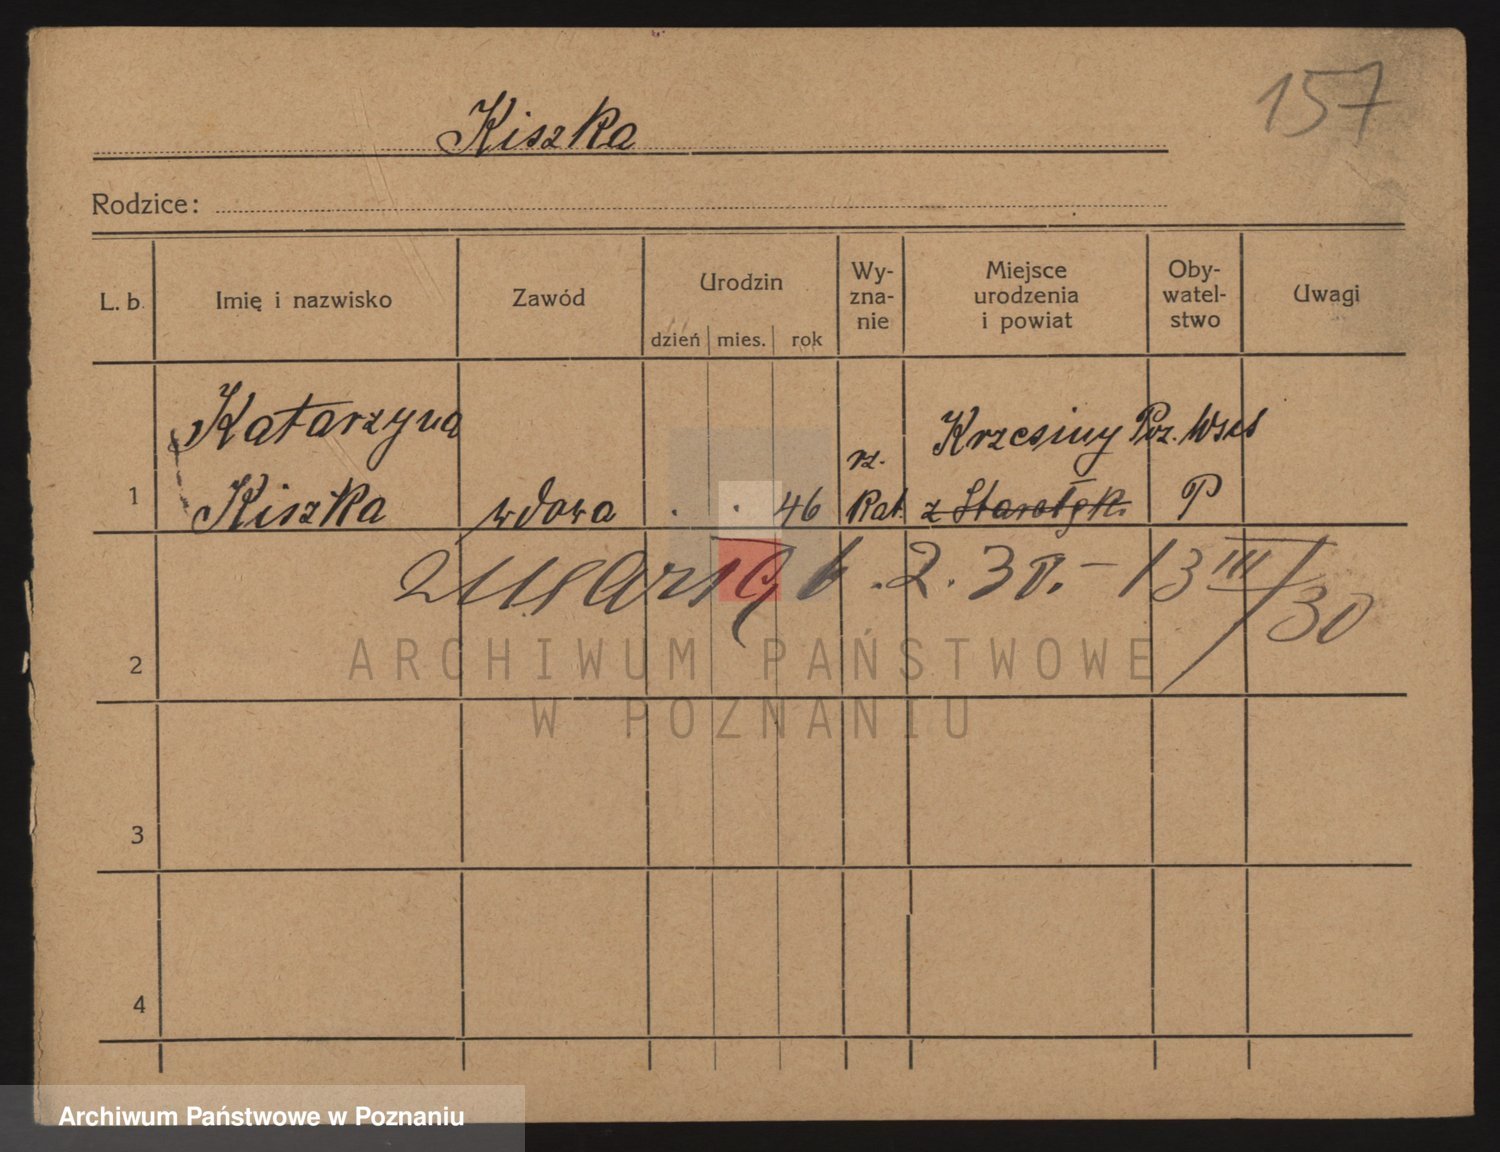 157
Kiszka
Rodzice:
L. b. Imię i nazwisko Zawód Urodzin dzień mies. rok Wy-zna-nie Miejsce urodzenia i powiat Oby-watel-stwo Uwagi
Katarzyna Krzesiny Poz. Wsch
1 Kiszka wdowa . . 46 rz. Kat. z Starołęk. P
zmarła b. 2. 30. - 13 III/30
2
3
4
ARCHIWUM PAŃSTWOWE
W POZNANIU
Archiwum Państwowe w Poznaniu